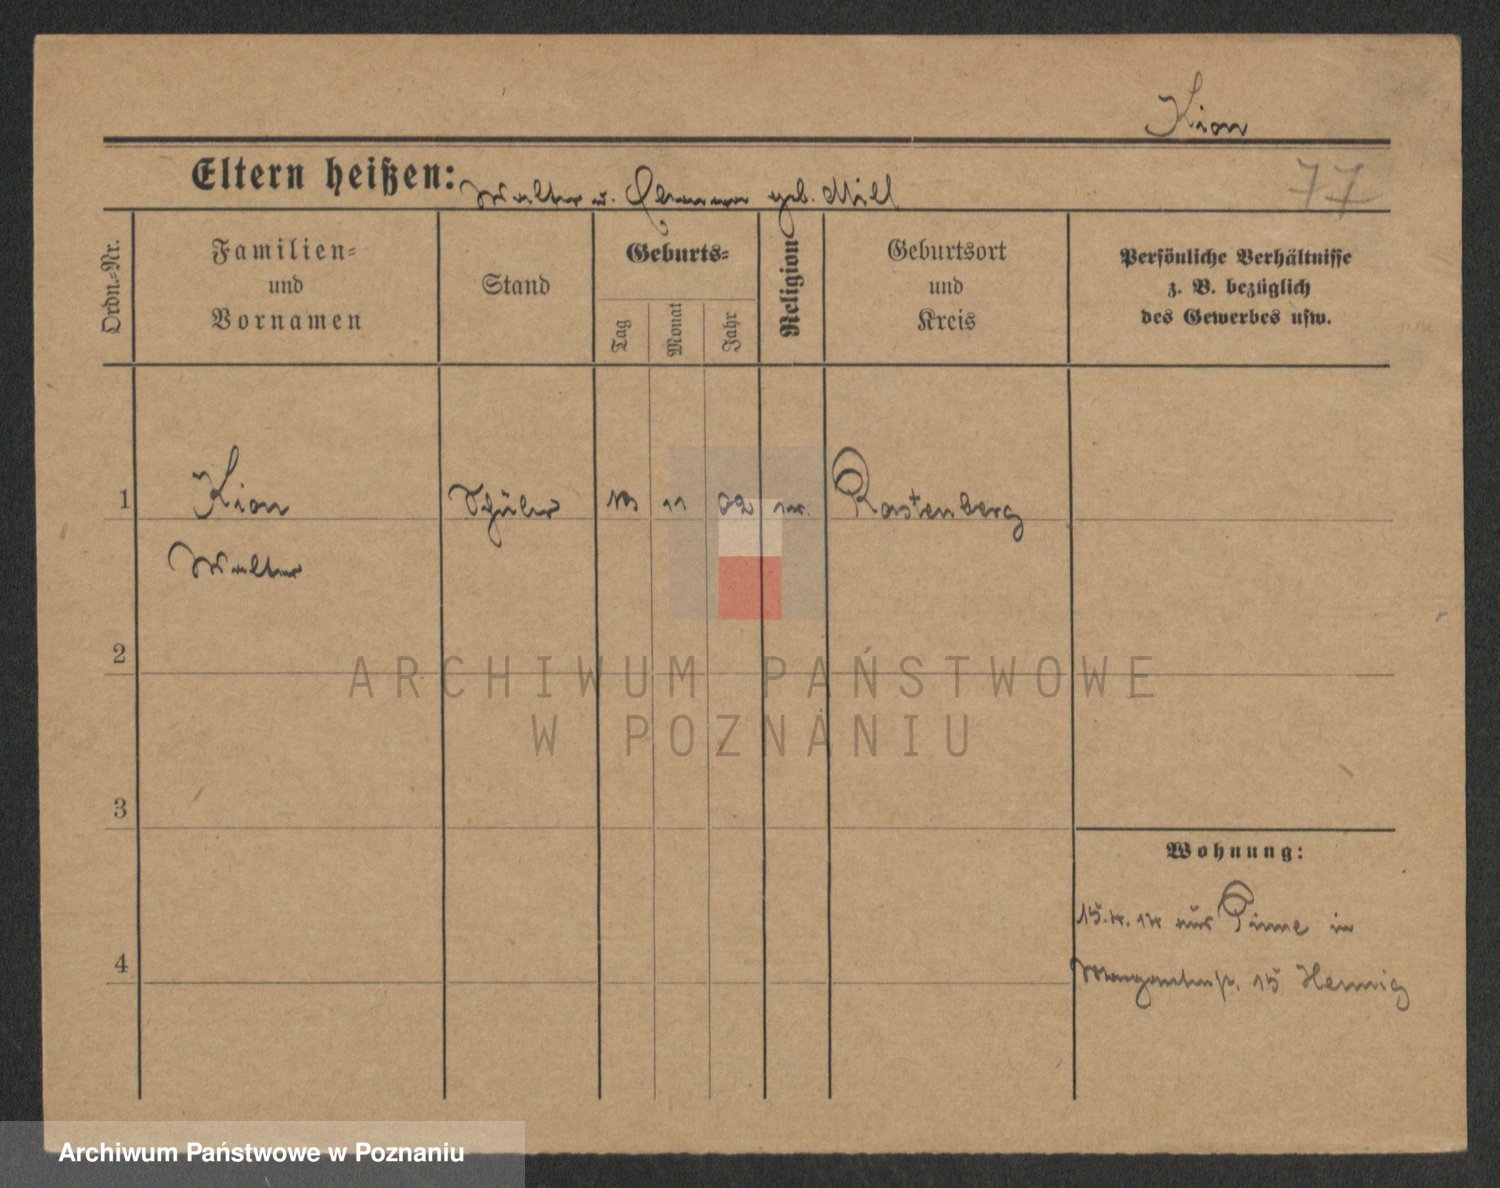 Kion
77
Eltern heißen: Walter u. geb. Mill
Ordn.-Nr.
Familien-
und
Vornamen
Stand
Geburts-
Tag
Monat
Jahr
Religion
Geburtsort
und
Kreis
Persönliche Verhältnisse
z. B. bezüglich
des Gewerbes usw.
1 Kion Schüler 11 02 Rastenberg
Walter
2
3
4
Wohnung:
15. 14 aus Pinne in
15 Hennig
ARCHIWUM PAŃSTWOWE
W POZNANIU
Archiwum Państwowe w Poznaniu